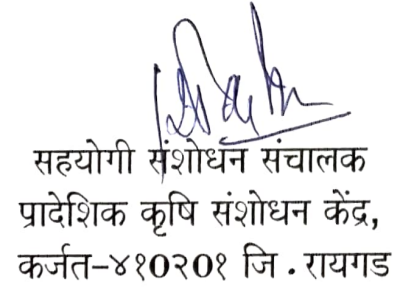 सहयोगी संशोधन संचालक
प्रादेशिक कृषि संशोधन केंद्र,
कर्जत-४१०२०१ जि . रायगड